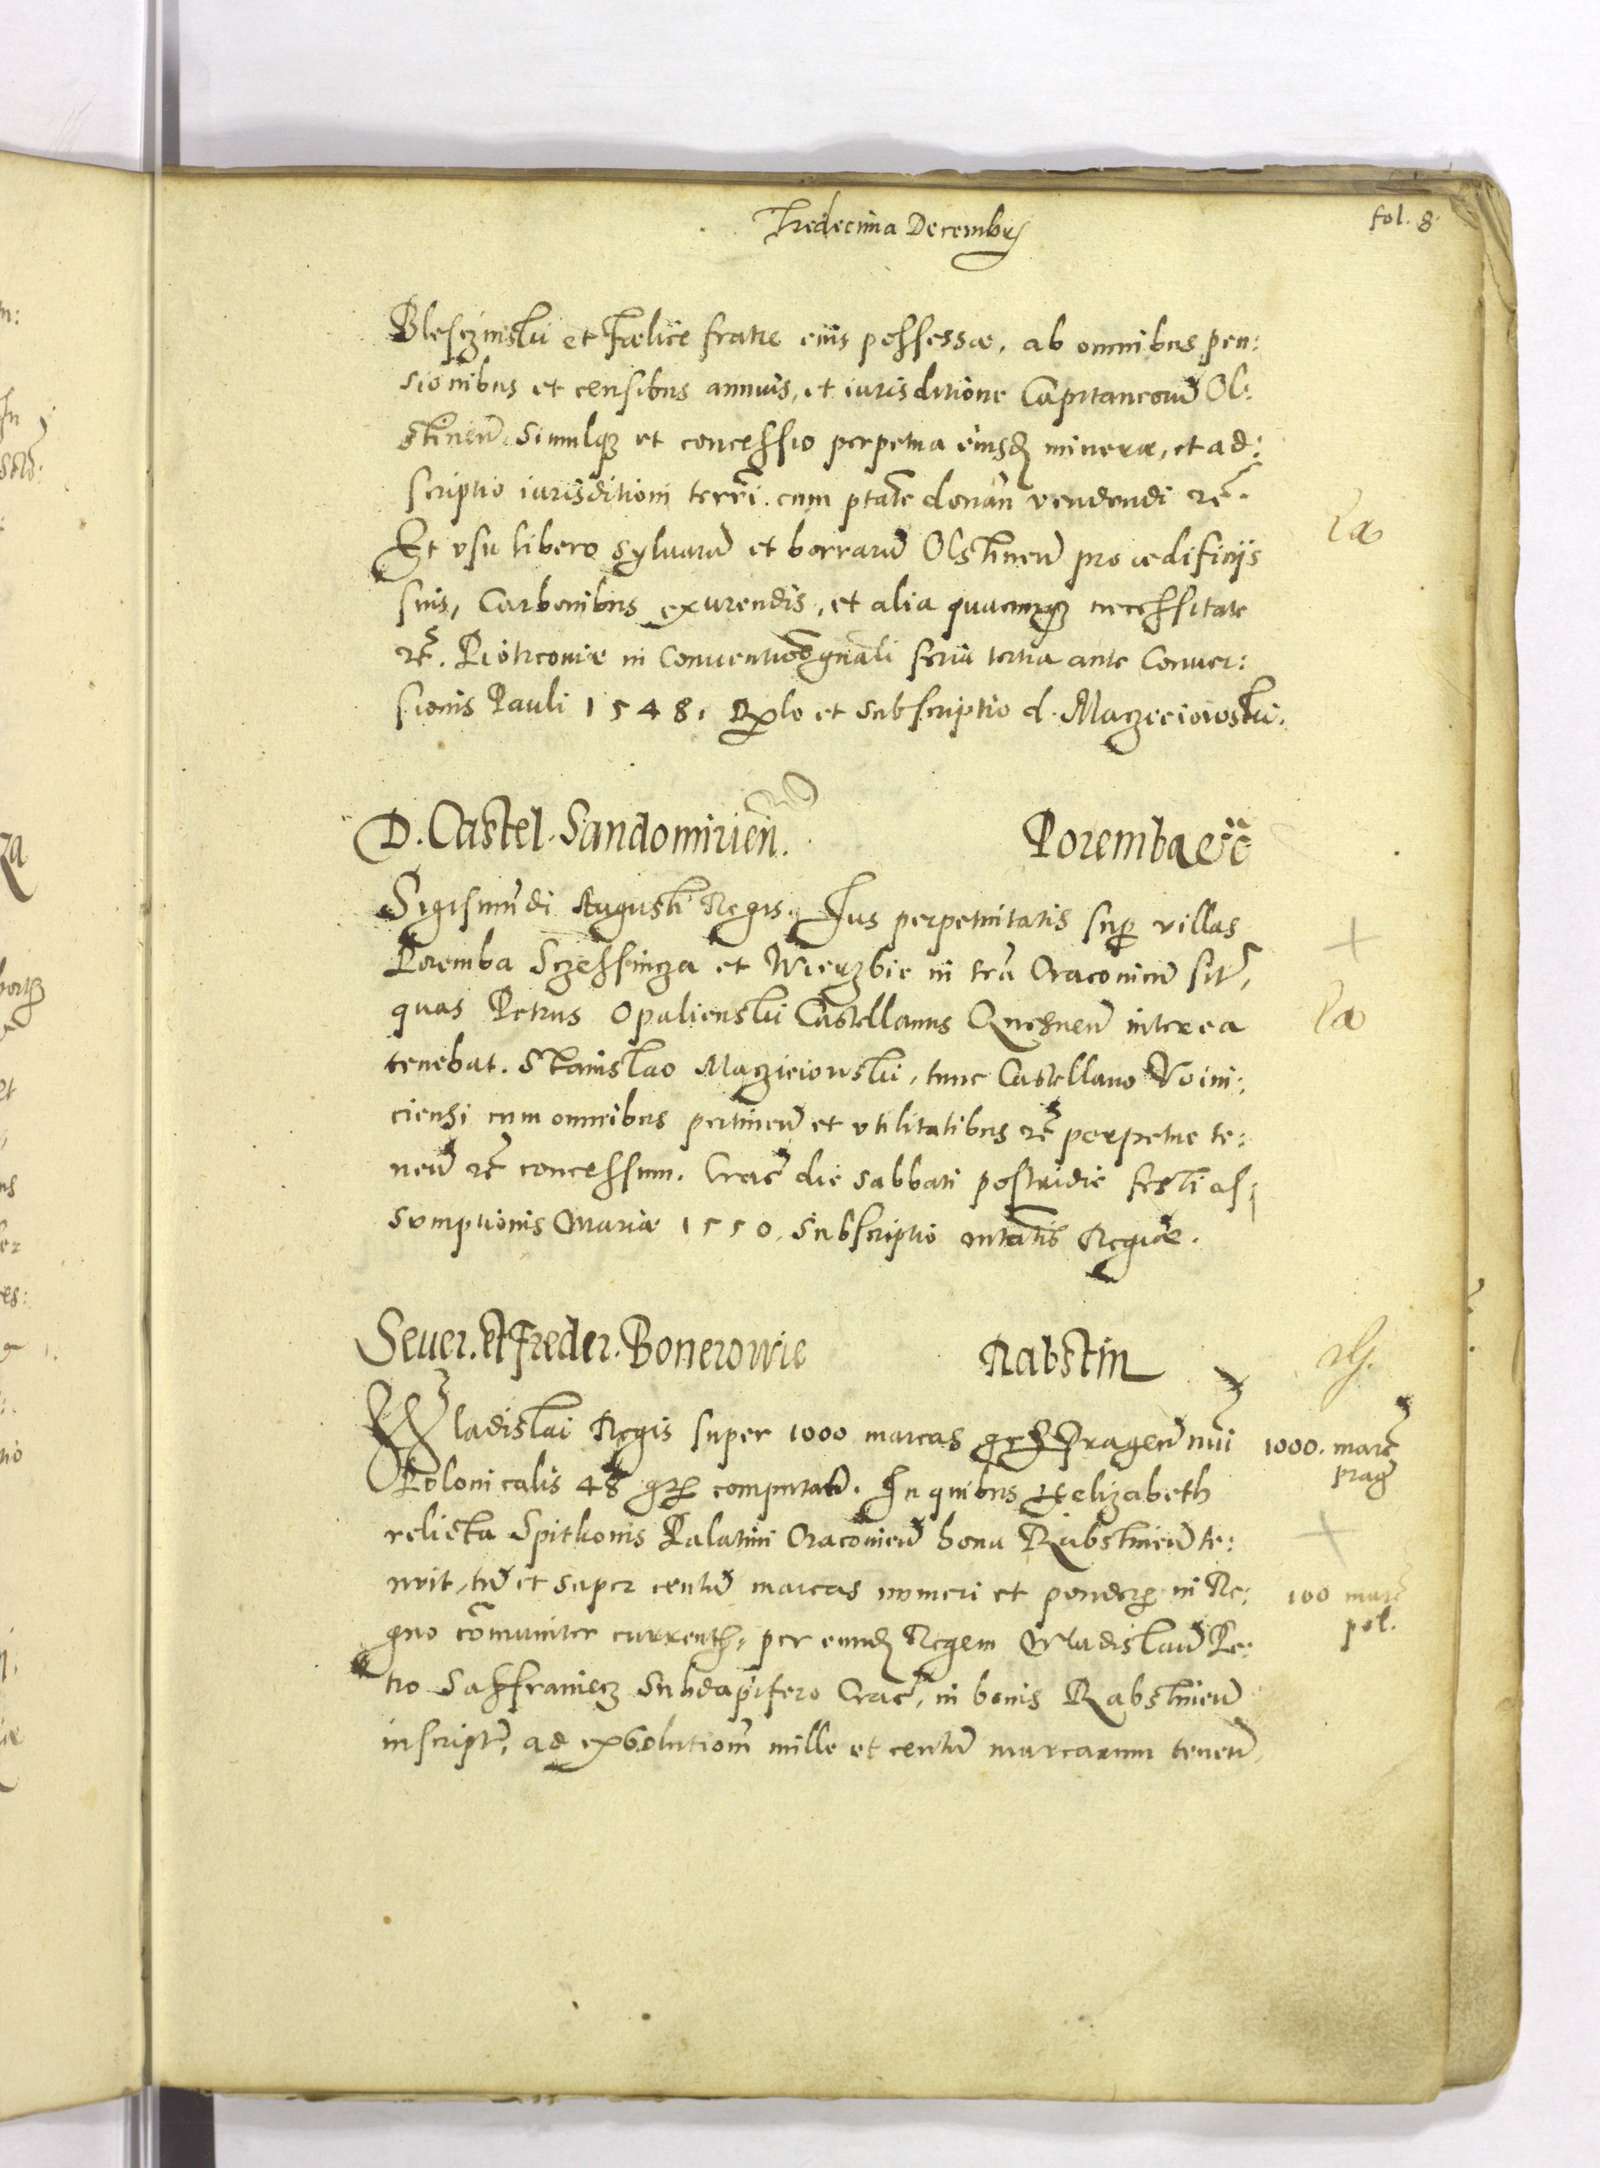 Tredecima Decembr
fol. 8
Blesczinski et Foelice fratre eius possessae, ab omnibus pen:
sionibus et censibus annuis, et iurisditione Capitaneorũ Ol:
stinen̄. Simulqȝ et concessio perpetua eiusd minerae, et ad:
scriptio iurisditioni terrī. cum ptāte donan̄ vendendi rc̃.
Et vsu libero sylvarũ et borrarũ Olstinen̄ pro aedificijs
suis, Carbonibus exurendis, et alia quacunqȝ necessitate
rc̃. Piotrcoviae in Conventioē gn̄ali feria tertia ante Conver:
sionis Pauli 1548. Rlo et subscriptio d. Maczieiowski.
D. Castel. Sandomirien̄. Poremba &c̃
Sigismũdi Augusti Regis. Ius perpetuitatis sup villas
Poremba Sczessincza et Wierzbie in tr̃a Cracovien̄ sit,
quas Petrus Opalienski Castellanus Gnesnen̄ interea
tenebat. Stanislao Maczieiowski, tunc Castellano Voini:
ciensi cum omnibus pertinen̄ et vtilitatibus rc̃ perpetue te:
nen̄ rc̃ concessum. Crac̃ die Sabbati postridie festi as:
sumptionis Mariae 1550. Subscriptio Mtātis Regiae.
Sever. et Freder. Bonerowie Rabstin
Wladislai Regis super 1000 marcas gr Pragen̄ nũi
1000. marc̃
prag
Polonicalis 48 gr computan̄. In quibus Helizabeth
relicta Spitkonis Palatini Cracovien̄ bona Rabstinen̄ te:
nuit, tũ et super centũ marcas numeri et ponder in Re:
100 marc̃
pol.
gno cõmuniter currenth, per eund Regem Wladislaũ Pe:
tro Saffraniecz Subdapifero Crac̃, in bonis Rabstinen̄
inscript, ad exsolutionē mille et centũ marcarum tenen̄